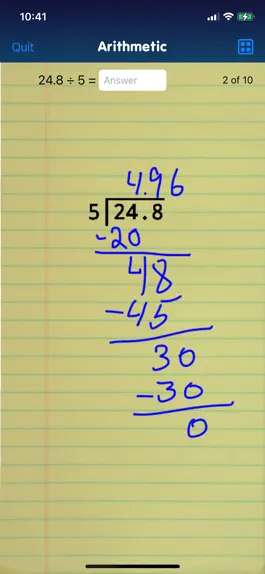 10:41
Quit Arithmetic
24.8 ÷ 5 = Answer 2 of 10
4.96
5 24.8
-20
48
-45
30
-30
0